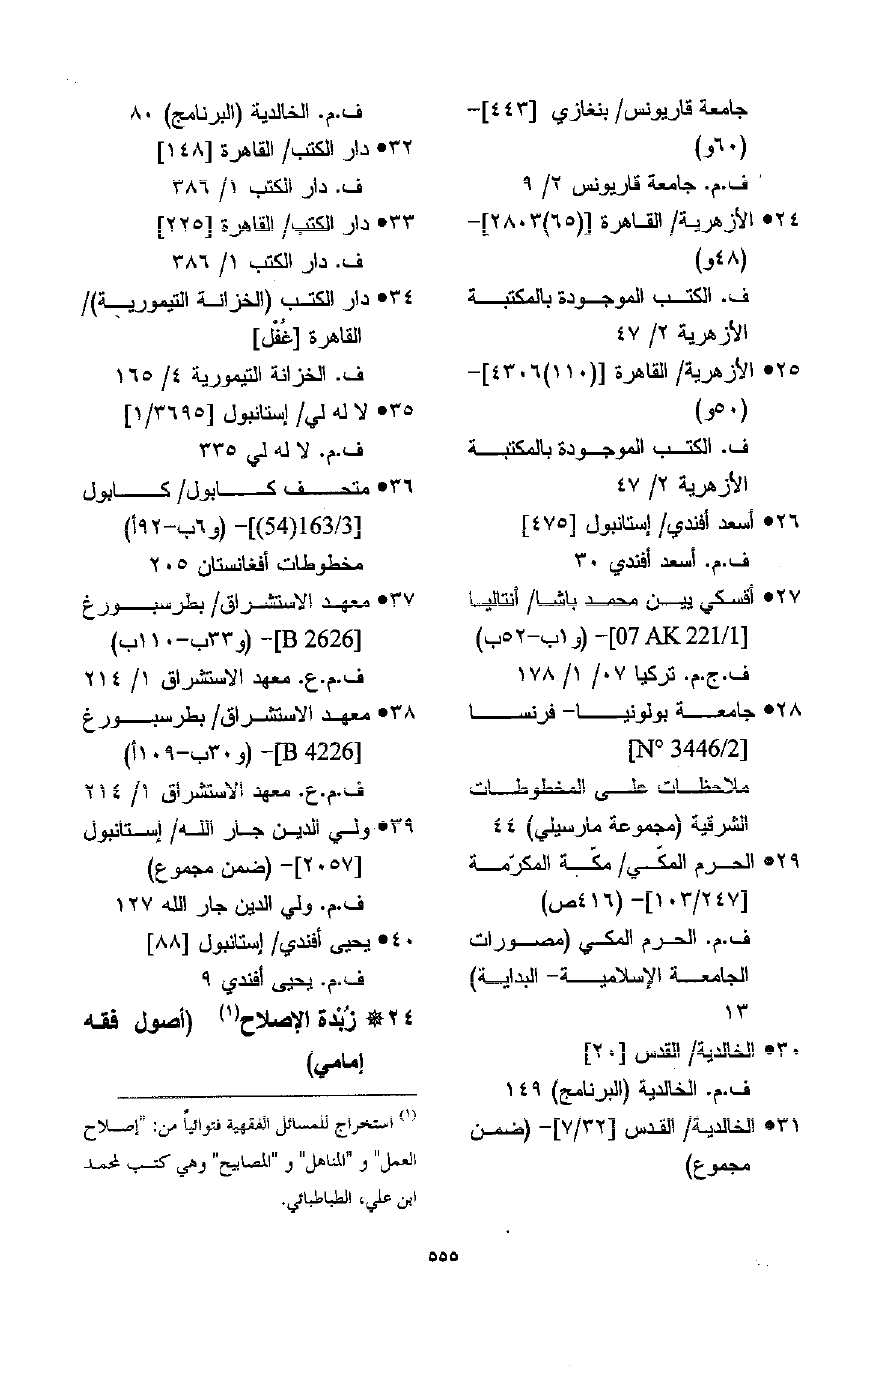 جامعة قاريونس/ بنغازي [٤٤٣]-
(٦٠و)
ف.م. جامعة قاريونس ٢/ ٩
٢٤• الأزهرية/ القاهرة [(٦٥)٢٨٠٣]-
(٤٨و)
ف. الكتب الموجودة بالمكتبة
الأزهرية ٢/ ٤٧
٢٥• الأزهرية/ القاهرة [(١١٠)٤٣٠٦]-
(٥٠و)
ف. الكتب الموجودة بالمكتبة
الأزهرية ٢/ ٤٧
٢٦• أسعد أفندي/ إستانبول [٤٧٥]
ف.م. أسعد أفندي ٣٠
٢٧• أقسكي يين محمد باشا/ أنتاليا
[07 AK 221/1]- (و١ب-٥٢ب)
ف.ج.م. تركيا ٠٧/ ١/ ١٧٨
٢٨• جامعة بولونيا- فرنسا
[N° 3446/2]
ملاحظات على المخطوطات
الشرقية (مجموعة مارسيلي) ٤٤
٢٩• الحرم المكّي/ مكّة المكرّمة
[١٠٣/٢٤٧]- (٤١٦ص)
ف.م. الحرم المكي (مصورات
الجامعة الإسلامية- البداية)
١٣
٣٠• الخالدية/ القدس [٢٠]
ف.م. الخالدية (البرنامج) ١٤٩
٣١• الخالدية/ القدس [٧/٣٢]- (ضمن
مجموع)
ف.م. الخالدية (البرنامج) ٨٠
٣٢• دار الكتب/ القاهرة [١٤٨]
ف. دار الكتب ١/ ٣٨٦
٣٣• دار الكتب/ القاهرة [٢٢٥]
ف. دار الكتب ١/ ٣٨٦
٣٤• دار الكتب (الخزانة التيمورية)/
القاهرة [غُفْل]
ف. الخزانة التيمورية ٤/ ١٦٥
٣٥• لا له لي/ إستانبول [١/٣٦٩٥]
ف.م. لا له لي ٣٣٥
٣٦• متحف كابول/ كابول
[163/3(54)]- (و٦ب-٩٢أ)
مخطوطات أفغانستان ٢٠٥
٣٧• معهد الاستشراق/ بطرسبورغ
[B 2626]- (و٣٣ب-١١٠ب)
ف.م.ع. معهد الاستشراق ١/ ٢١٤
٣٨• معهد الاستشراق/ بطرسبورغ
[B 4226]- (و٣٠ب-١٠٩أ)
ف.م.ع. معهد الاستشراق ١/ ٢١٤
٣٩• ولي الدين جار الله/ إستانبول
[٢٠٥٧]- (ضمن مجموع)
ف.م. ولي الدين جار الله ١٢٧
٤٠• يحيى أفندي/ إستانبول [٨٨]
ف.م. يحيى أفندي ٩
٢٤ * زُبْدة الإصلاح(١) (أصول فقه
إمامي)
(١) استخراج للمسائل الفقهية فتوائياً من: "إصلاح
العمل" و "المناهل" و "المصابيح" وهي كتب لمحمد
ابن علي، الطباطبائي.
٥٥٥